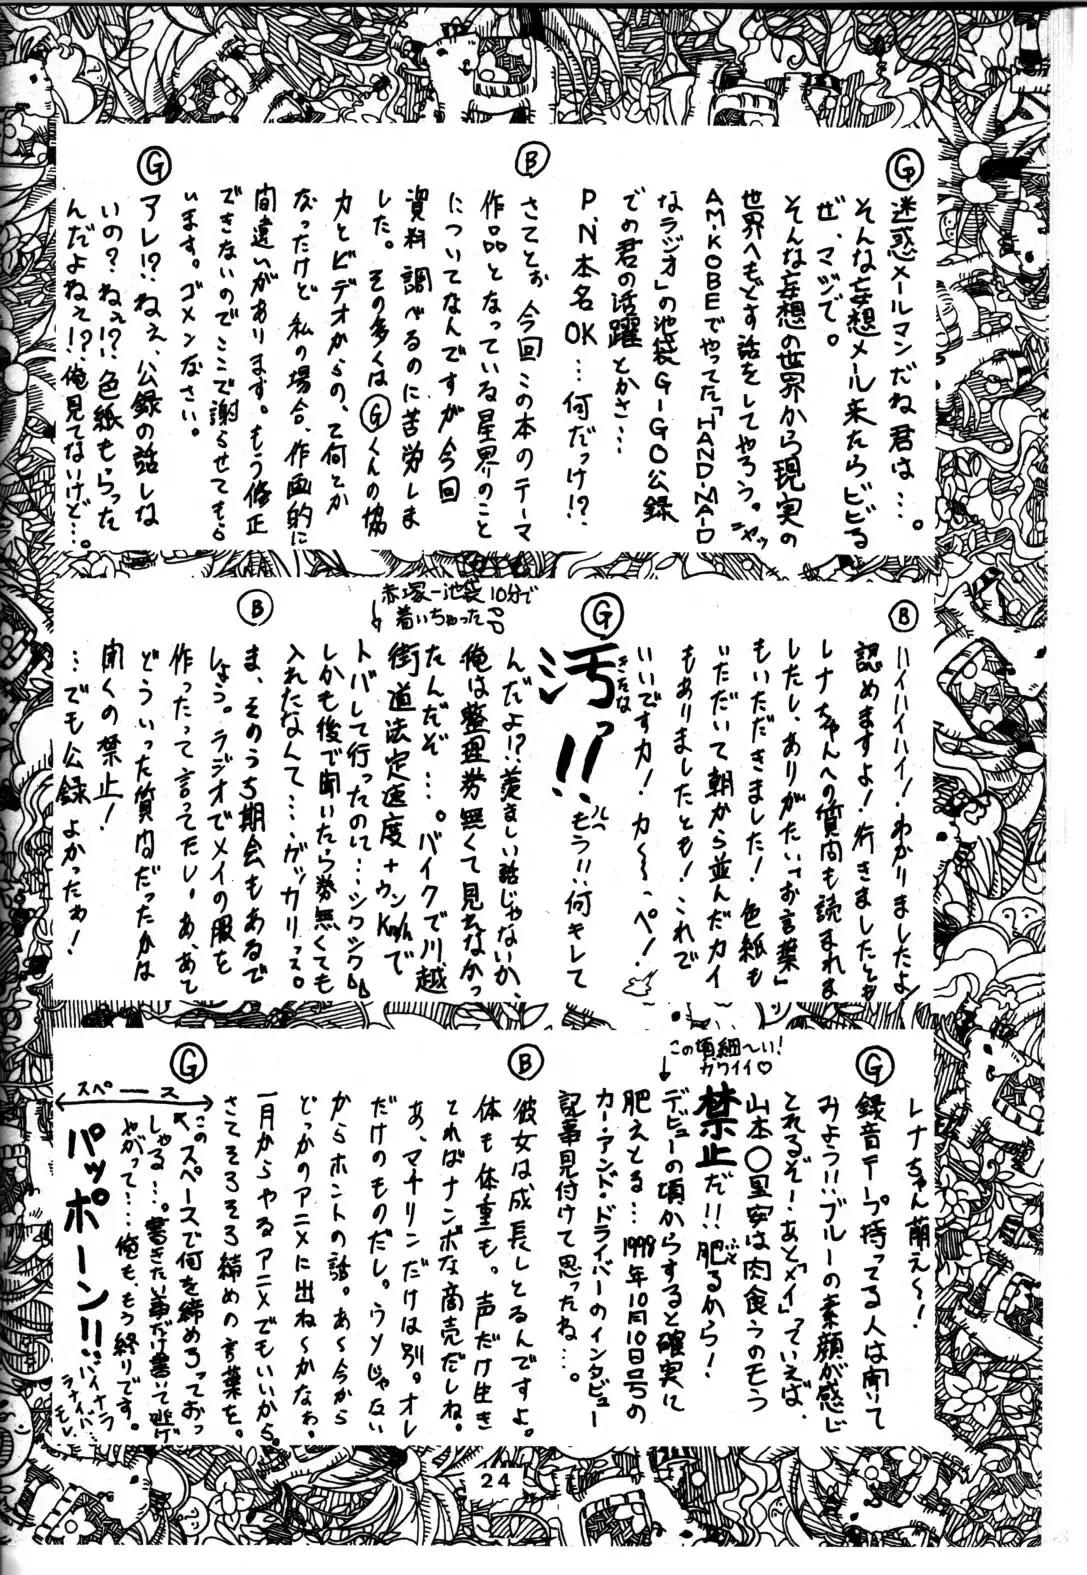 G
迷惑メールマンだね君は…。
そんな妄想メール来たらビビる
ぜ、マジで。
そんな妄想の世界から現実の
世界へもどす話をしてやろう。ニャッ
AM・KOBEでやってた「HAND・MAID
なラジオ」の池袋GーGO公録
での君の活躍とかさ…
P.N本名OK…何だっけ!?
B
さてとぉ、今回この本のテーマ
作品となっている星界のこと
についてなんですが今回
資料調べるのに苦労しま
した。その多くはGくんの協
力とビデオからの、て何とか
なったけど私の場合、作画的に
間違いがあります。もう修正
できないので…ここで謝らせてもら
います。ゴメンなさい。
G
アレ!?ねぇ、公録の話しな
いの?ねぇ!?色紙もらった
んだよねぇ!?俺見てないけど…。
B
ハイハイハイ!わかりましたよ!
認めますよ!行きましたとも
レナちゃんへの質問も読まれま
したし、ありがたい「お言葉」
もいただきました!色紙も
いただいて朝から並んだカイ
もありましたとも!これで
いいですカ!カ〜っペ!
G
汚っ!!
きたな
もう!!何キレて
んだよ!?羨ましい話じゃないか…
俺は整理券無くて見れなかっ
たんだぞ…。バイクで川越
街道法定速度+ウンKm/hで
トバして行ったのに…シクシク
しかも後で聞いたら券無くても
入れたなんて…ゲッカリっス。
赤塚ー池袋10分で
着いちゃった
B
ま、そのうち期会もあるで
しょう。ラジオでメイの服を
作ったって言ってたし。あ、あと
どういった質問だったかは
聞くの禁止!
…でも公録よかったわ!
レナちゃん萌え〜!
G
録音テープ持ってる人は聞いて
みよう!!ブルーの素顔が感じ
とれるぞ!あと「メイ」っていえば、
山本〇里安は肉食うのもう
禁止だ!!肥るから!
この頃細〜い!
カワイイ♡
デビューの頃からすると確実に
肥えとる…1998年10月10日号の
カー・アンド・ドライバーのインタビュー
記事見付けて思ったね…。
B
彼女は成長しとるんですよ。
体も体重も。声だけ生き
とればナンボな商売だしね。
あ、マチリンだけは別。オレ
だけのものだし。ウソじゃない
からホントの話。あ〜今から
どっかのアニメに出ね〜かなぁ。
一月からやるアニメでもいいから。
さてそろそろ締めの言葉を。
G
スペース
このスペースで何を締めろっておっ
しゃる…。書きたい事だけ書いて逃げ
やがって…俺も、もう終りです。
パッポーン!!
バイナラ
24